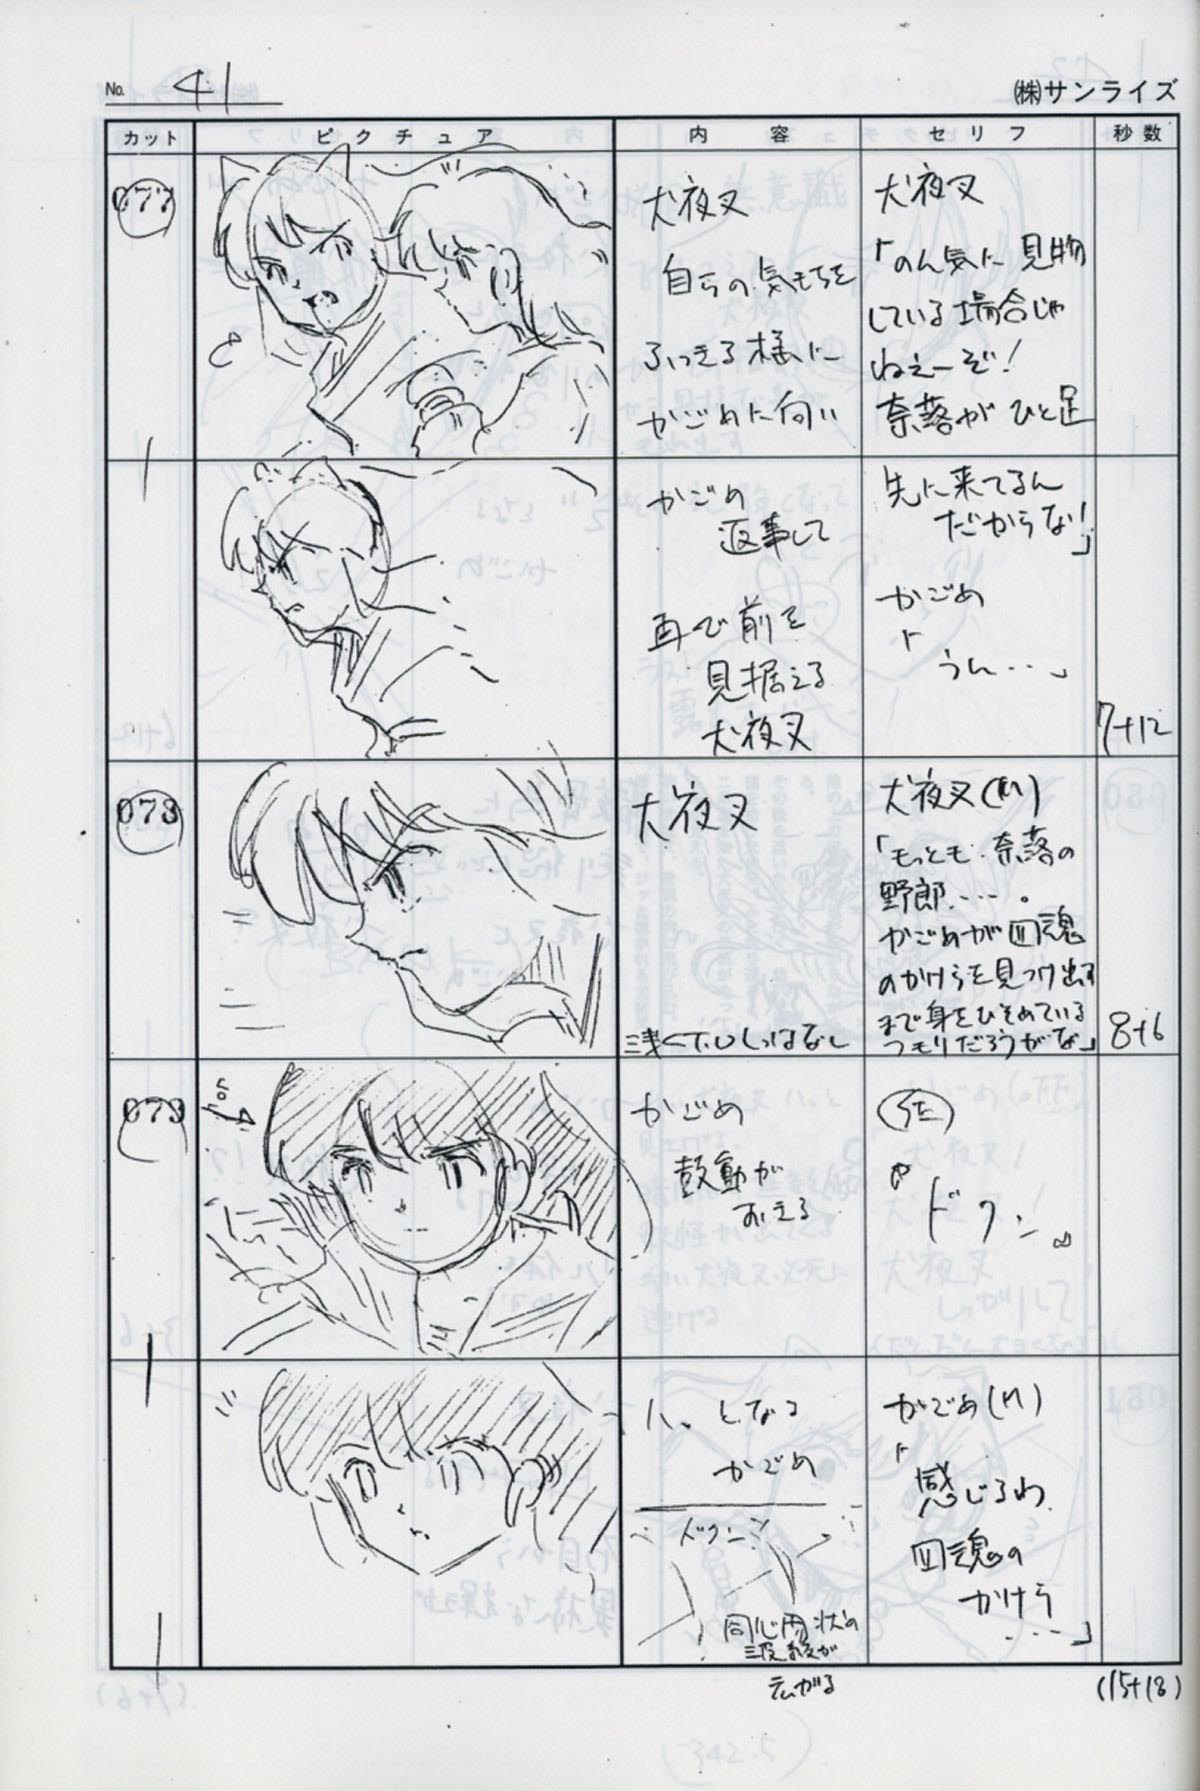 No. 41
(株)サンライズ
カット ピクチュア 内容 セリフ 秒数
077
犬夜叉
自らの気もちを
ふっきる様に
かごめに向い
犬夜叉
「のん気に見物
している場合じゃ
ねえーぞ!
奈落がひと足
かごめ
返事して
再び前を
見据える
犬夜叉
先に来てるん
だからな!」
かごめ
「うん…」
7+12
073
犬夜叉
浅くT.Uしっぱなし
犬夜叉(M)
「もっとも、奈落の
野郎……。
かごめが四魂
のかけらを見つけ出す
まで身をひそめている
つモリだろうがな」
8+6
073
かごめ
鼓動が
おえる
「ドクン」
ハッとなる
かごめ
ドクン
同心円状の
波紋が
広がる
かごめ(M)
「感じるわ
四魂の
かけら
……」
(15+18)